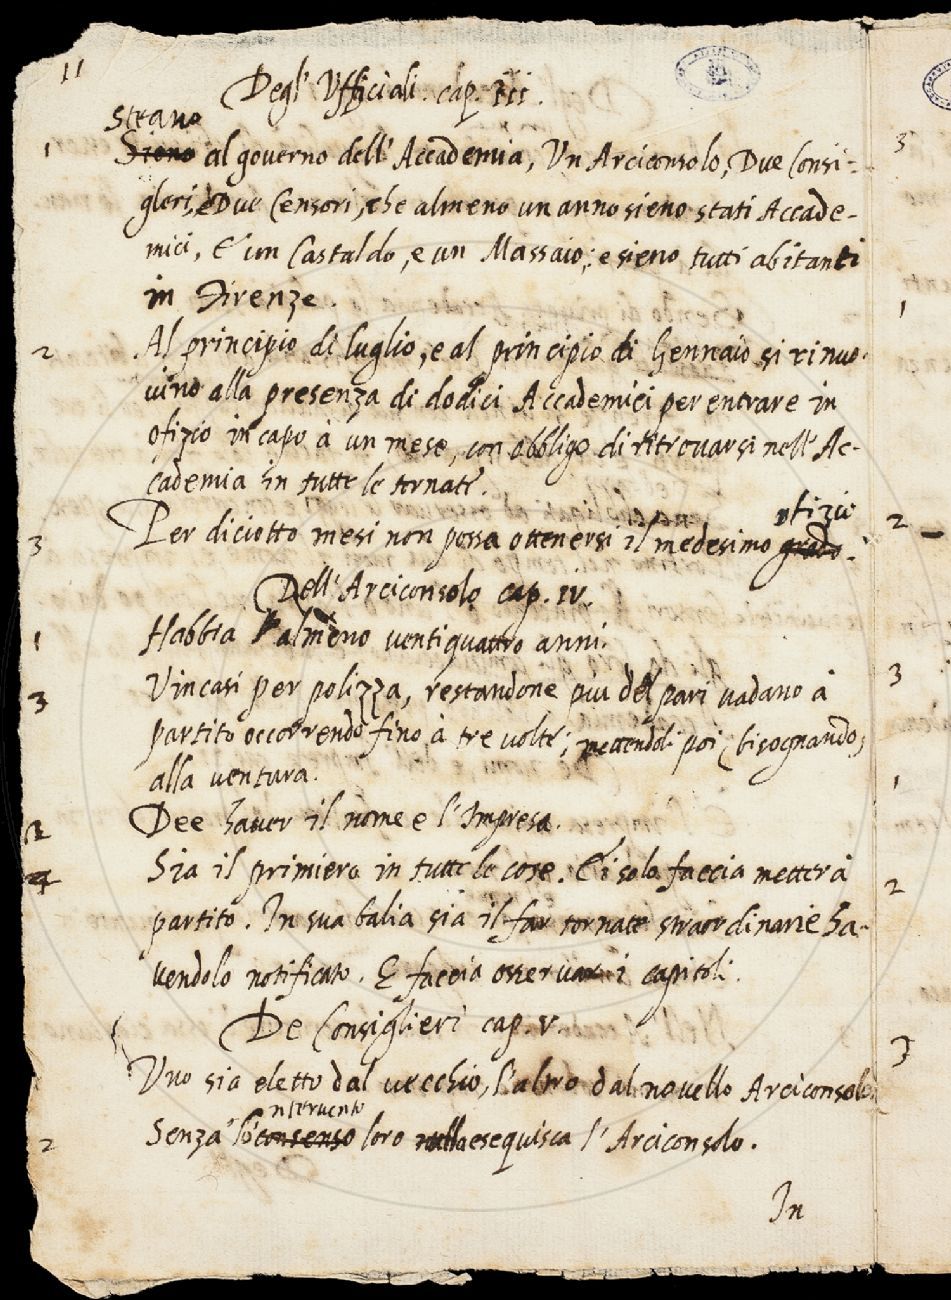 11
Degl' Vfficiali. cap. III.
Steano
1 Sieno al gouerno dell' Accademia, Vn Arciconsolo, Due Consi-
glieri, e Due Censori, che almeno un anno sieno stati Accade-
mici, E un Castaldo, e un Massaio; e sieno tutti abitanti
in Firenze.
2 Al principio di luglio, e al principio di Gennaio si rinuo-
uino alla presenza di dodici Accademici per entrare in
ofizio in capo à un mese, con obbligo di ritrouarsi nell' Ac-
cademia in tutte le tornate.
ofizio
3 Per diciotto mesi non possa ottenersi il medesimo grado.
Dell' Arciconsolo cap. IV.
1 Habbia almeno uentiquattro anni.
3 Vincasi per polizza, restandone piu del pari uadano à
partito occorrendo fino à tre uolte; mettendoli poi (bisognando)
alla uentura.
2 Dee hauer il nome e l'Impresa.
4 Sia il primiero in tutte le cose. E i solo faccia metter à
partito. In sua balia sia il far tornate straordinarie ha-
uendolo notificato. E faccia osseruare i capitoli.
De Consiglieri cap. V.
Vno sia eletto dal uecchio, l'altro dal nouello Arciconsolo.
interuento
2 Senza lo consenso loro nulla esequisca l'Arciconsolo.
In
3
1
2
3
1
2
3